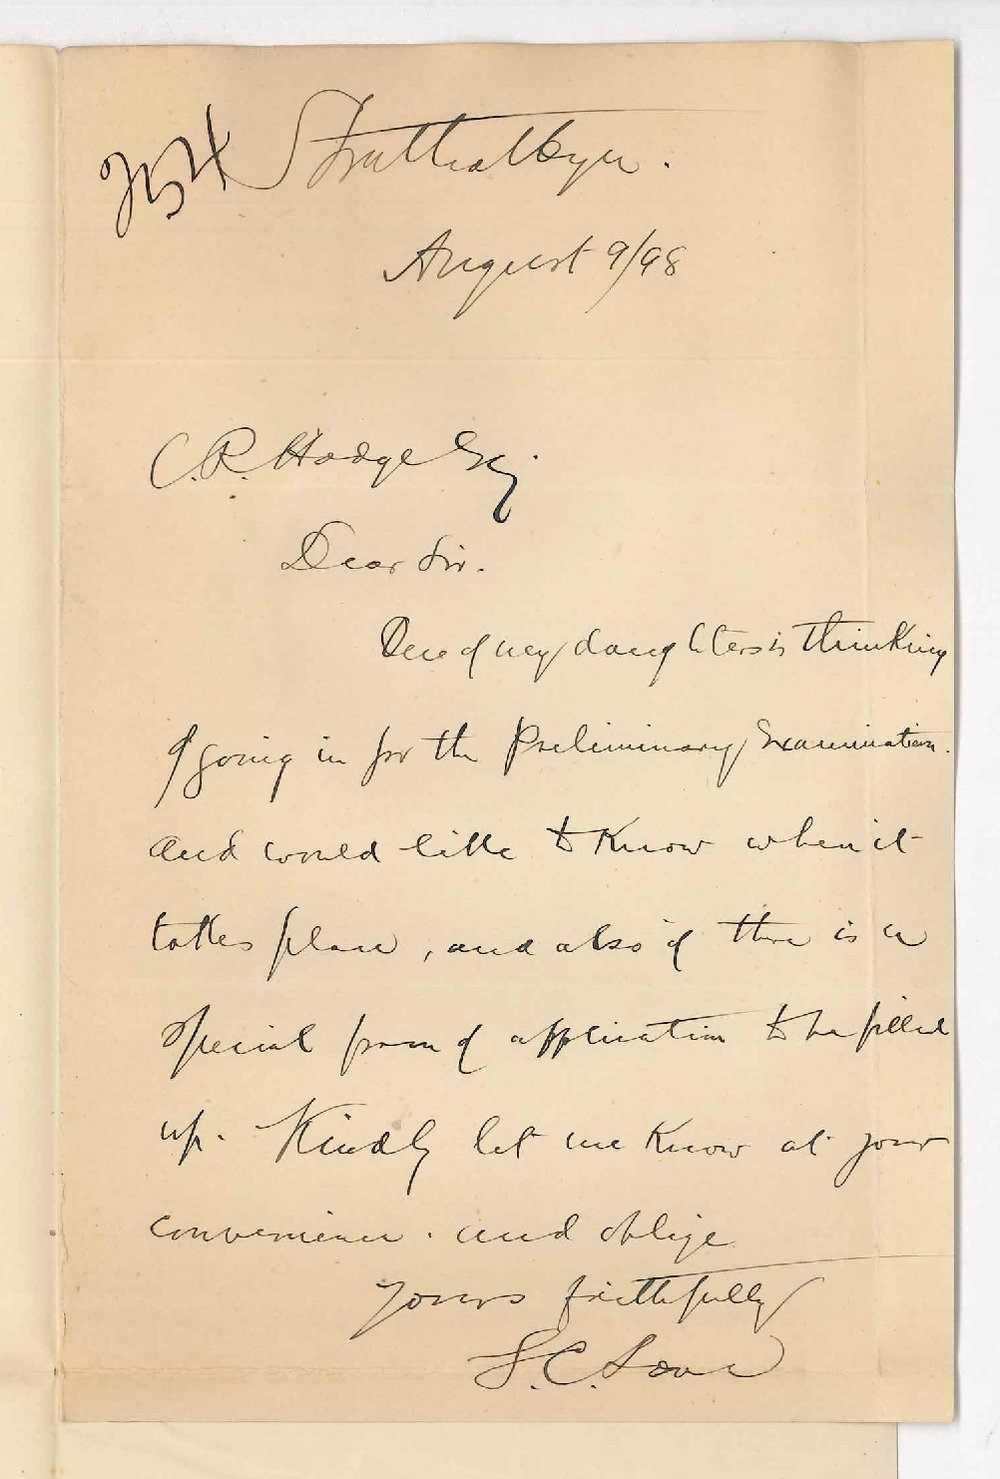 754 Strathalbyn.
August 9/98
C.R. Hodge Esq.
Dear Sir.
One of my daughters is thinking
of going in for the Preliminary Examination.
and would like to know when it
takes place, and also if there is a
special form of application to be filled
up. Kindly let me know at your
convenience. and oblige
yours faithfully
S.C.